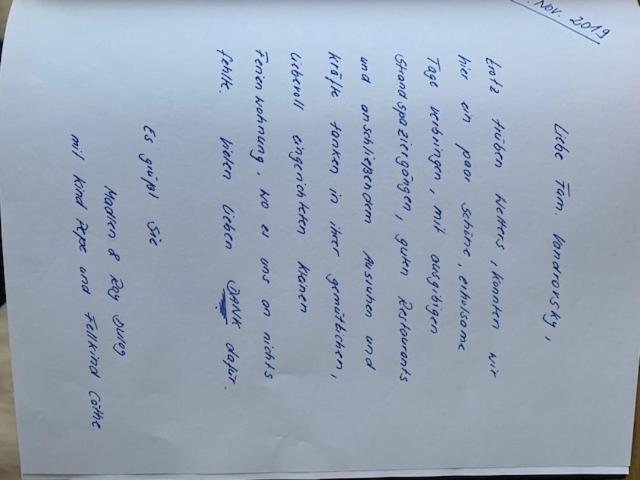 . Nov. 2019
Liebe Fam. Vandrovsky,
trotz trüben Wetters, konnten wir
hier ein paar schöne, erholsame
Tage verbringen, mit ausgibigen
Strandspaziergängen, guten Restaurants
und anschließendem Ausruhen und
kräfte tanken in ihrer gemütlichen,
liebevoll eingerichteten kleinen
Ferienwohnung, wo es uns an nichts
fehlte. Vielen lieben DANK dafür.
Es grüßt Sie
Madlen & Roy
mit Kind Pepe und Fellkind Cöthe